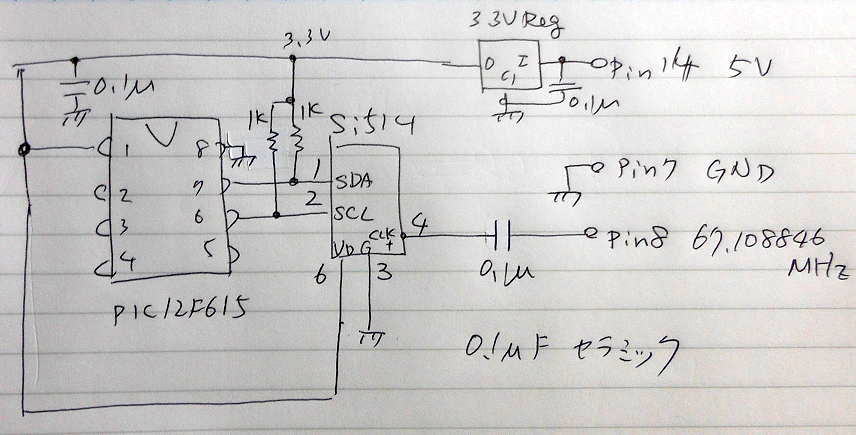 3.3V
3.3V Reg
O I
G
Pin 14 5V
0.1μ
0.1μ
1K 1K
Si514
1 8
2 7
3 6
4 5
PIC12F615
1 SDA
2 SCL
CLK
+
4
VD G
6 3
0.1μ
Pin7 GND
Pin8 67.108846
MHz
0.1μF セラミック